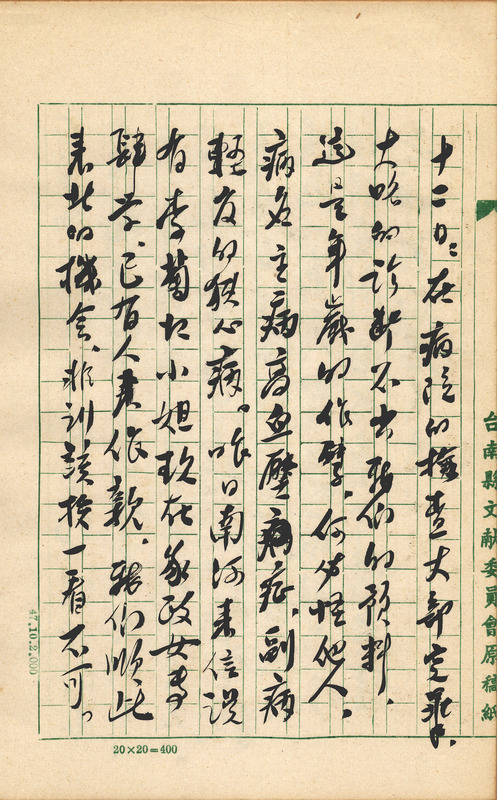 十二日：在病院的檢查大部完畢，
大略的診斷不出我們的預料，
這是年歲的作孽，何必怪他人。
病名主病高血壓病症，副病
輕度的狹心病。昨日南河來信說
有李菊紅小姐現在家政女專
肄業、已有人要作親，我們順此
來北的機會、非訓該按一看不可。
台南縣文献委員會原稿紙
20×20=400
47.10.2,000